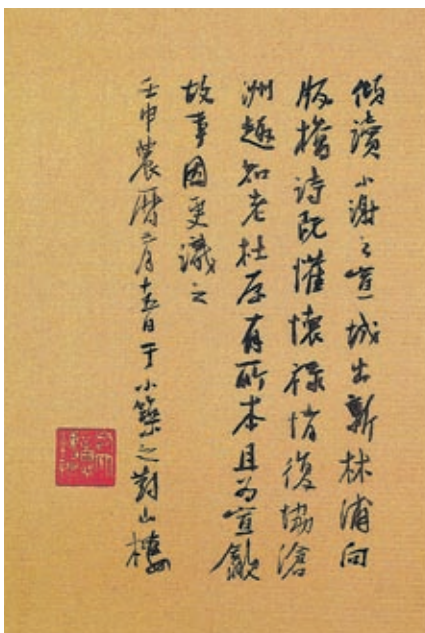 傾讀小謝之宣城出新林浦向
版橋詩既懽懷禄情復協滄
洲趣知老杜原有所本且為宣歙
故事因更識之
壬申農曆二月十五日于小築之對山樓